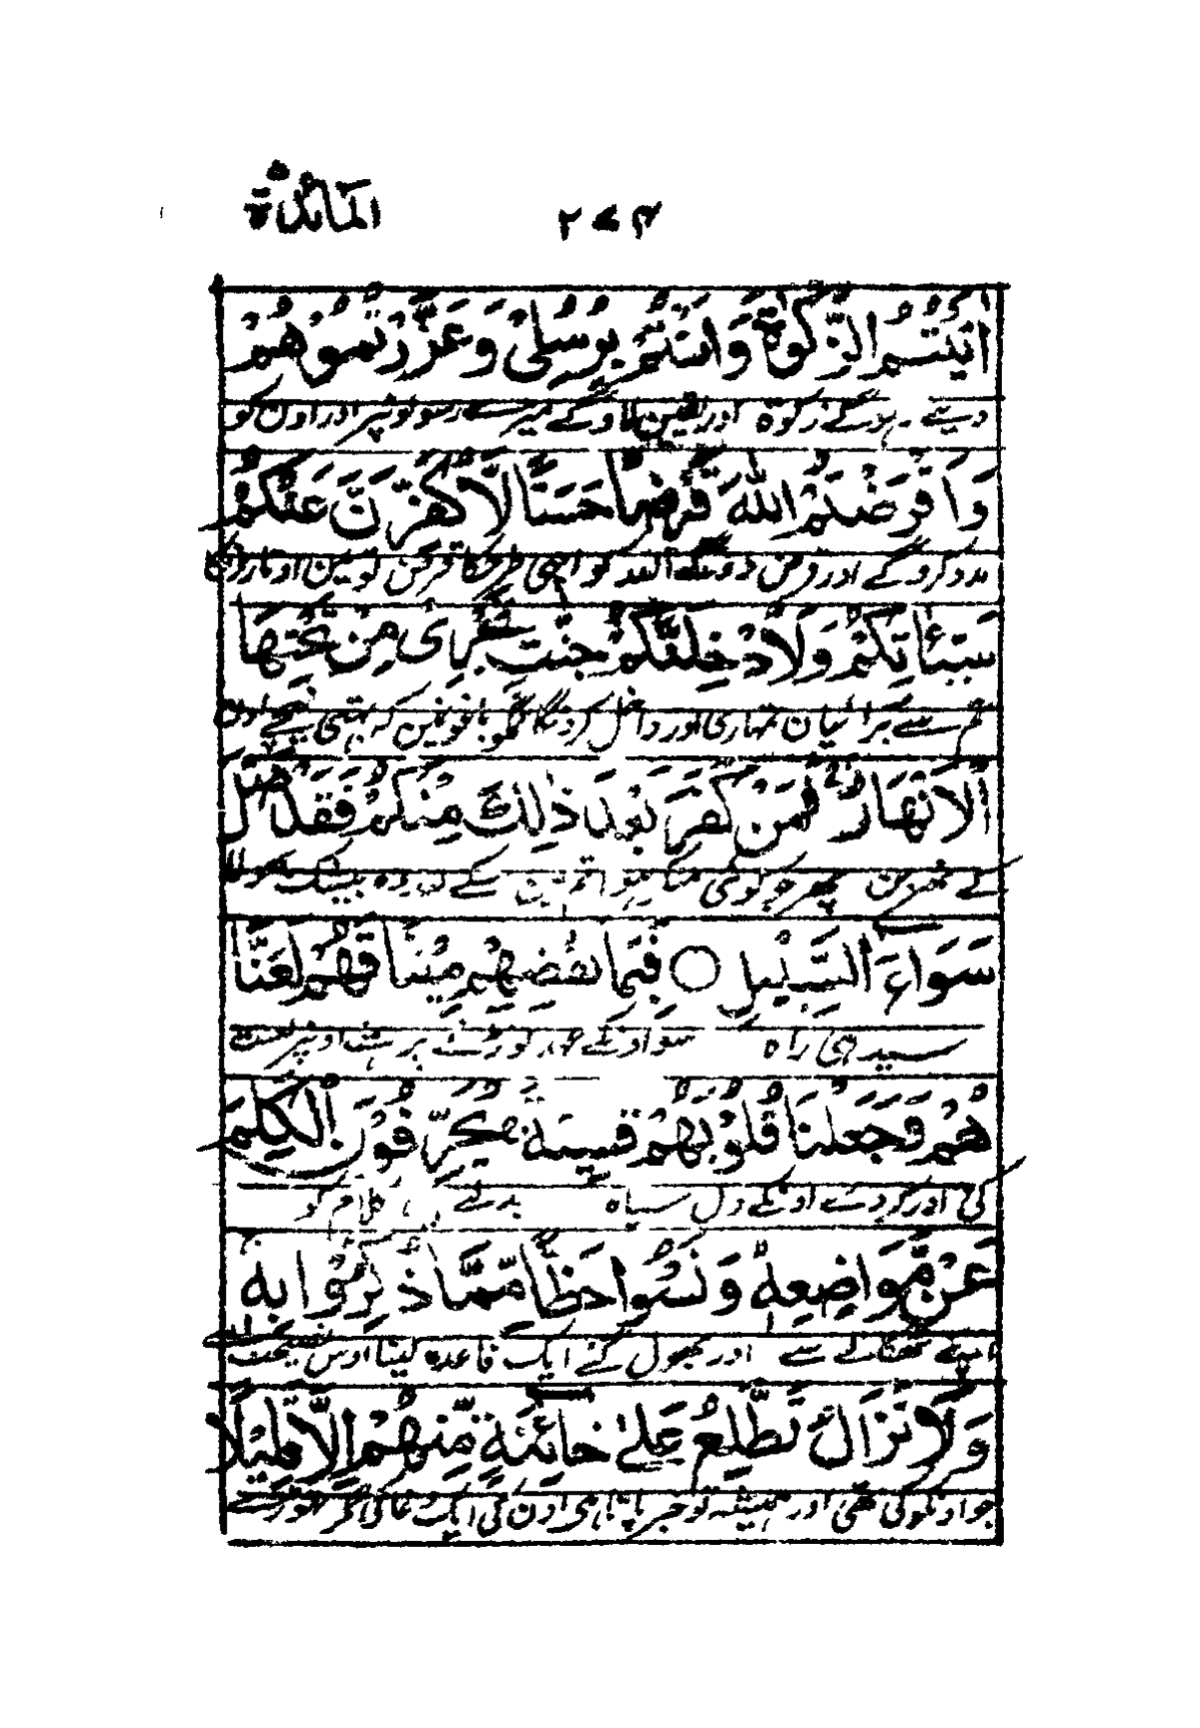 المائدة ۲۷۴
اٰتَيْتُمُ الزَّكٰوةَ وَاٰمَنْتُمْ بِرُسُلِىْ وَعَزَّرْتُمُوْهُمْ
دیتے رہوگے زکوۃ اور یقین لاوگے میرے رسولونپر اور اون کو
وَاَقْرَضْتُمُ اللّٰهَ قَرْضًا حَسَنًا لَّاُكَفِّرَنَّ عَنْكُمْ
مدد کروگے اور قرض دوگے اللہ کو اچھی طرحکا قرض تو مین اوتار دونگا
سَيِّاٰتِكُمْ وَلَاُدْخِلَنَّكُمْ جَنّٰتٍ تَجْرِىْ مِنْ تَحْتِهَا
تم سے برائیان تمہاری اور داخل کرونگا تمکو باغونمین کہ بہتی نیچے اون
الْاَنْهَارُ فَمَنْ كَفَرَ بَعْدَ ذٰلِكَ مِنْكُمْ فَقَدْ ضَلَّ
کے نہرین پھر جو کوئی منکر ہوا تم مین اسکے بعد وہ بیشک بھولا
سَوَآءَ السَّبِيْلِ ○ فَبِمَا نَقْضِهِمْ مِّيْثَاقَهُمْ لَعَنّٰ
سیدھی راہ سو اونکے عہد توڑنے پر ہمنے اونپر لعنت
هُمْ وَجَعَلْنَا قُلُوْبَهُمْ قٰسِيَةً يُحَرِّفُوْنَ الْكَلِمَ
کی اور کردئے اونکے دل سیاہ بدلتے ہین کلام کو
عَنْ مَّوَاضِعِهٖ وَنَسُوْا حَظًّا مِّمَّا ذُكِّرُوْا بِهٖ
اپنے ٹھکانے سے اور بھول گئے ایک فائدہ لینا اوس نصیحت سے
وَلَا تَزَالُ تَطَّلِعُ عَلٰى خَآئِنَةٍ مِّنْهُمْ اِلَّا قَلِيْلًا
جو اونکو کی تھی اور ہمیشہ تو خبر پاتا ہی اون کی ایک دغا کی مگر تھوڑے